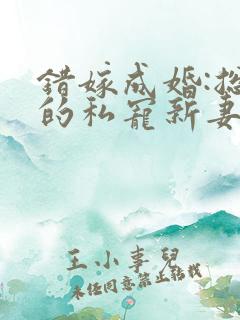 錯嫁成婚:總
的私寵新妻
王小事兒
未经同意禁止转载